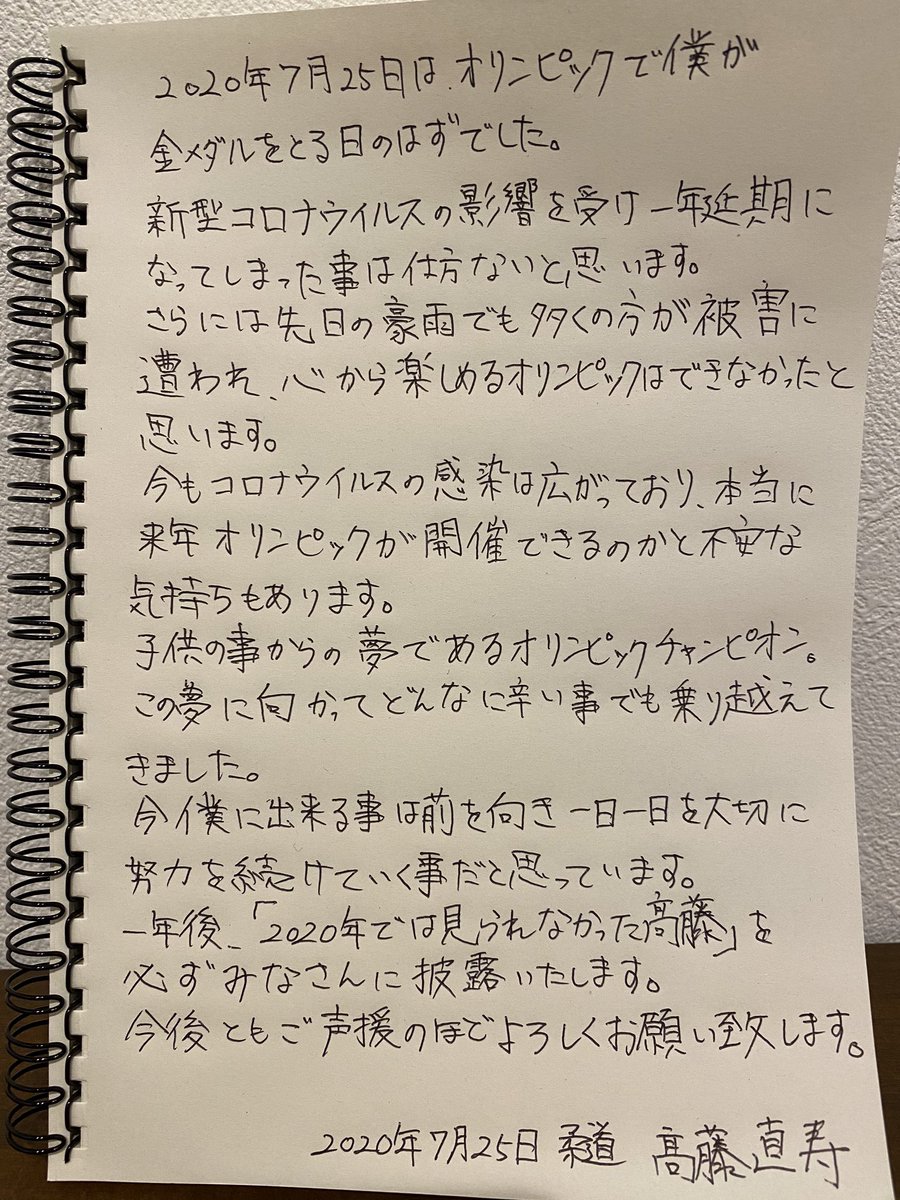 2020年7月25日は、オリンピックで僕が
金メダルをとる日のはずでした。
新型コロナウイルスの影響を受け一年延期に
なってしまった事は仕方ないと思います。
さらには先日の豪雨でも多くの方が被害に
遭われ、心から楽しめるオリンピックはできなかったと
思います。
今もコロナウイルスの感染は広がっており、本当に
来年オリンピックが開催できるのかと不安な
気持ちもあります。
子供の事からの夢であるオリンピックチャンピオン。
この夢に向かってどんなに辛い事でも乗り越えて
きました。
今僕に出来る事は前を向き一日一日を大切に
努力を続けていく事だと思っています。
一年後、「2020年では見られなかった髙藤」を
必ずみなさんに披露いたします。
今後ともご声援のほどよろしくお願い致します。
2020年7月25日 柔道 髙藤直寿